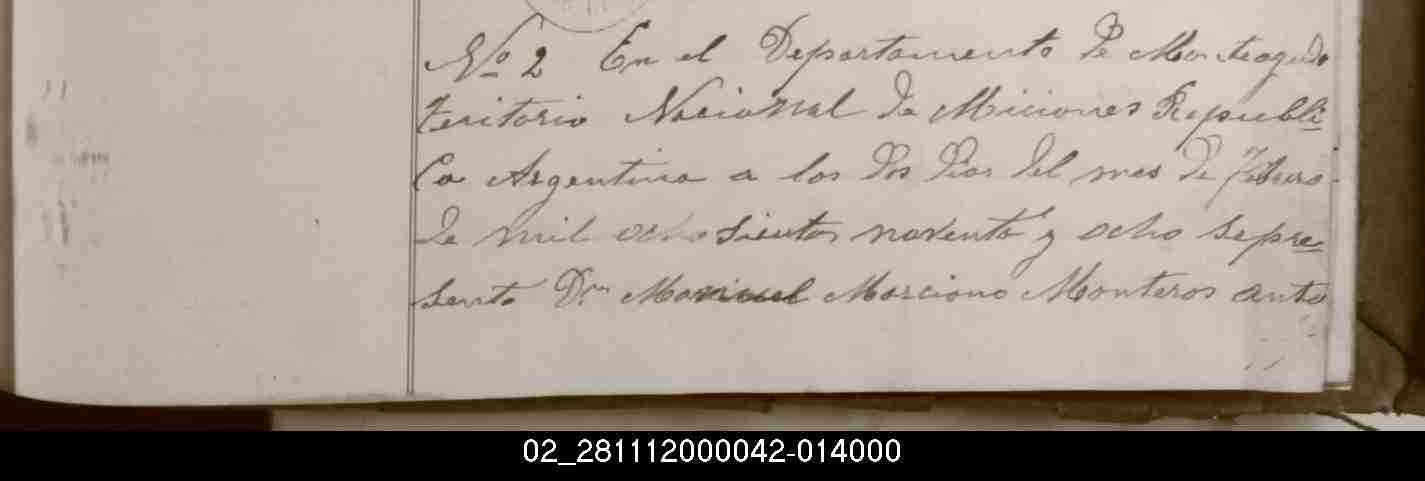 No 2 En el Departamento de Monteagudo
teritorio Nacional de Miciones Republi-
ca Argentina a los dos dias del mes de Febrero
de mil ocho sientos noventa y ocho sepre-
sento Dn Manuel Marciano Monteros ante
02_281112000042-014000